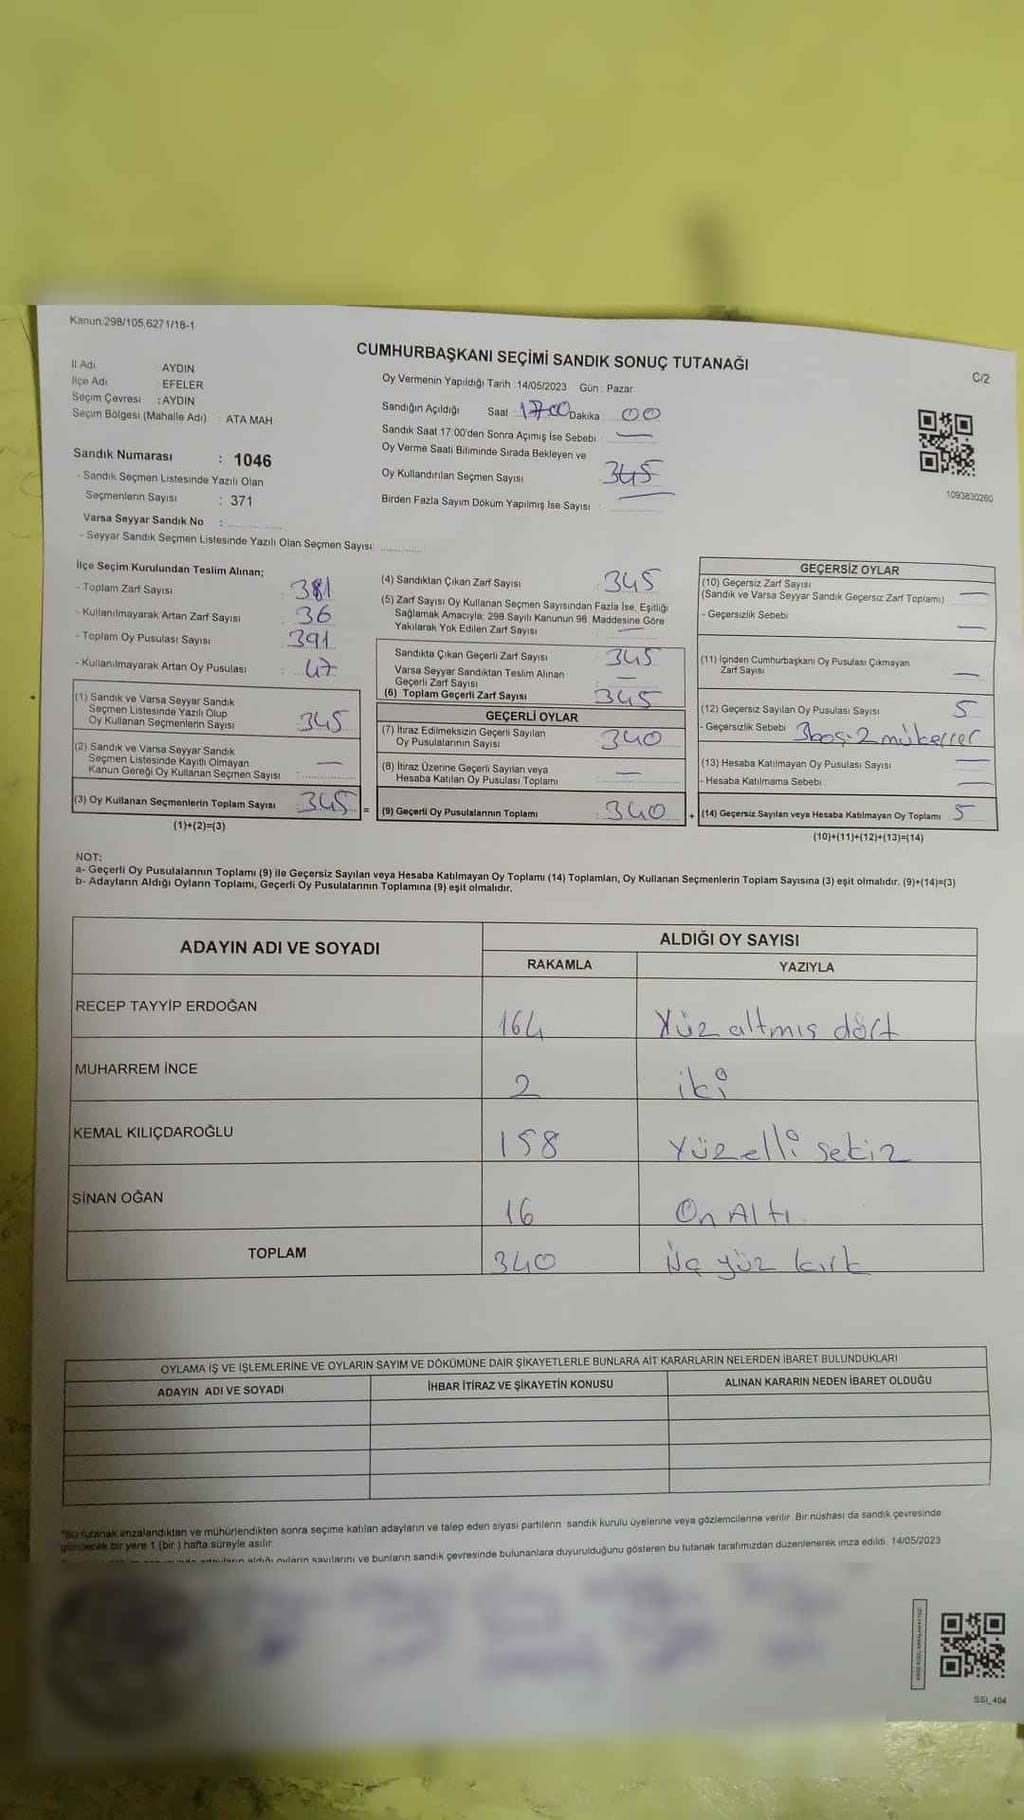 Kanun:298/105,6271/18-1
CUMHURBAŞKANI SEÇİMİ SANDIK SONUÇ TUTANAĞI
C/2
İl Adı AYDIN
İlçe Adı EFELER
Seçim Çevresi : AYDIN
Seçim Bölgesi (Mahalle Adı) : ATA MAH
Sandık Numarası : 1046
- Sandık Seçmen Listesinde Yazılı Olan
Seçmenlerin Sayısı : 371
Varsa Seyyar Sandık No :
- Seyyar Sandık Seçmen Listesinde Yazılı Olan Seçmen Sayısı:
Oy Vermenin Yapıldığı Tarih : 14/05/2023 Gün : Pazar
Sandığın Açıldığı Saat : 17:00 Dakika 00
Sandık Saat 17:00'den Sonra Açımış İse Sebebi : —
Oy Verme Saati Bitiminde Sırada Bekleyen ve
Oy Kullandırılan Seçmen Sayısı 345
Birden Fazla Sayım Döküm Yapılmış İse Sayısı
1093830260
İlçe Seçim Kurulundan Teslim Alınan;
- Toplam Zarf Sayısı : 381
- Kullanılmayarak Artan Zarf Sayısı : 36
- Toplam Oy Pusulası Sayısı : 391
- Kullanılmayarak Artan Oy Pusulası : 47
(1) Sandık ve Varsa Seyyar Sandık
Seçmen Listesinde Yazılı Olup
Oy Kullanan Seçmenlerin Sayısı : 345
(2) Sandık ve Varsa Seyyar Sandık
Seçmen Listesinde Kayıtlı Olmayan
Kanun Gereği Oy Kullanan Seçmen Sayısı : —
(3) Oy Kullanan Seçmenlerin Toplam Sayısı : 345 =
(1)+(2)=(3)
(4) Sandıktan Çıkan Zarf Sayısı 345
(5) Zarf Sayısı Oy Kullanan Seçmen Sayısından Fazla İse, Eşitliği
Sağlamak Amacıyla; 298 Sayılı Kanunun 98. Maddesine Göre
Yakılarak Yok Edilen Zarf Sayısı : —
Sandıkta Çıkan Geçerli Zarf Sayısı : 345
Varsa Seyyar Sandıktan Teslim Alınan
Geçerli Zarf Sayısı —
(6) Toplam Geçerli Zarf Sayısı : 345
GEÇERLİ OYLAR
(7) İtiraz Edilmeksizin Geçerli Sayılan
Oy Pusulalarının Sayısı : 340
(8) İtiraz Üzerine Geçerli Sayılan veya
Hesaba Katılan Oy Pusulası Toplamı : —
(9) Geçerli Oy Pusulalarının Toplamı : 340 +
GEÇERSİZ OYLAR
(10) Geçersiz Zarf Sayısı
(Sandık ve Varsa Seyyar Sandık Geçersiz Zarf Toplamı) —
- Geçersizlik Sebebi —
(11) İçinden Cumhurbaşkanı Oy Pusulası Çıkmayan
Zarf Sayısı —
(12) Geçersiz Sayılan Oy Pusulası Sayısı 5
- Geçersizlik Sebebi 3boş-2 mükerrer
(13) Hesaba Katılmayan Oy Pusulası Sayısı —
- Hesaba Katılmama Sebebi —
(14) Geçersiz Sayılan veya Hesaba Katılmayan Oy Toplamı 5
(10)+(11)+(12)+(13)=(14)
NOT:
a- Geçerli Oy Pusulalarının Toplamı (9) ile Geçersiz Sayılan veya Hesaba Katılmayan Oy Toplamı (14) Toplamları, Oy Kullanan Seçmenlerin Toplam Sayısına (3) eşit olmalıdır. (9)+(14)=(3)
b- Adayların Aldığı Oyların Toplamı, Geçerli Oy Pusulalarının Toplamına (9) eşit olmalıdır.
ADAYIN ADI VE SOYADI ALDIĞI OY SAYISI
RAKAMLA YAZIYLA
RECEP TAYYİP ERDOĞAN 164 Yüz altmış dört
MUHARREM İNCE 2 iki
KEMAL KILIÇDAROĞLU 158 Yüzelli sekiz
SİNAN OĞAN 16 On Altı
TOPLAM 340 Üç yüz kırk
OYLAMA İŞ VE İŞLEMLERİNE VE OYLARIN SAYIM VE DÖKÜMÜNE DAİR ŞİKAYETLERLE BUNLARA AİT KARARLARIN NELERDEN İBARET BULUNDUKLARI
ADAYIN ADI VE SOYADI İHBAR İTİRAZ VE ŞİKAYETİN KONUSU ALINAN KARARIN NEDEN İBARET OLDUĞU
*Bu tutanak imzalandıktan ve mühürlendikten sonra seçime katılan adayların ve talep eden siyasi partilerin sandık kurulu üyelerine veya gözlemcilerine verilir. Bir nüshası da sandık çevresinde
bir yere 1 (bir) hafta süreyle asılır.
adayların aldığı oyların sayılarını ve bunların sandık çevresinde bulunanlara duyurulduğunu gösteren bu tutanak tarafımızdan düzenlenerek imza edildi. 14/05/2023
SSİ_404